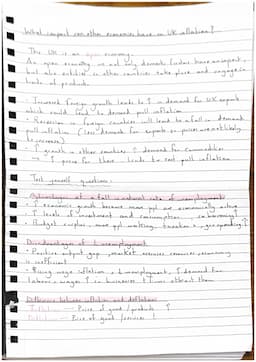 What impact can other economies have on UK inflation?
The UK is an open economy.
An open economy is not only domestic factors have an impact,
but also activities in other countries take place and engage in
trade of products.
· Increased foreign growth leads to ↑ in demand for UK exports
which could lead to demand pull inflation
· Recession in foreign countries will lead to a fall in demand
pull inflation (less demand for exports so prices are not likely
to increase)
· ↑ growth in other countries ↑ demand for commodities
→ ↑ prices for these leads to cost pull inflation
Test yourself questions:
Advantages of a fall in natural rate of unemployment
· Economic growth because more ppl are economically active
· ↑ levels of investment and consumption,
· Budget surplus, more ppl working, taxation ↑, gov spending ↑
Disadvantages of ↓ unemployment
· Positive output gap, market
is inefficient
· Rising wage inflation, ↓ unemployment, ↑ demand for
labour = wages ↑ in businesses to attract them
Difference between inflation and deflation:
Inflation → Price of goods / products ↑
→ Price of goods / services ↓